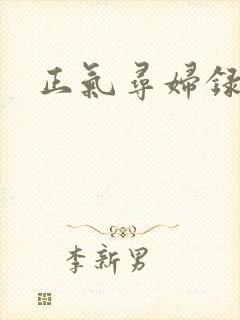 正氣尋婦録
李新男